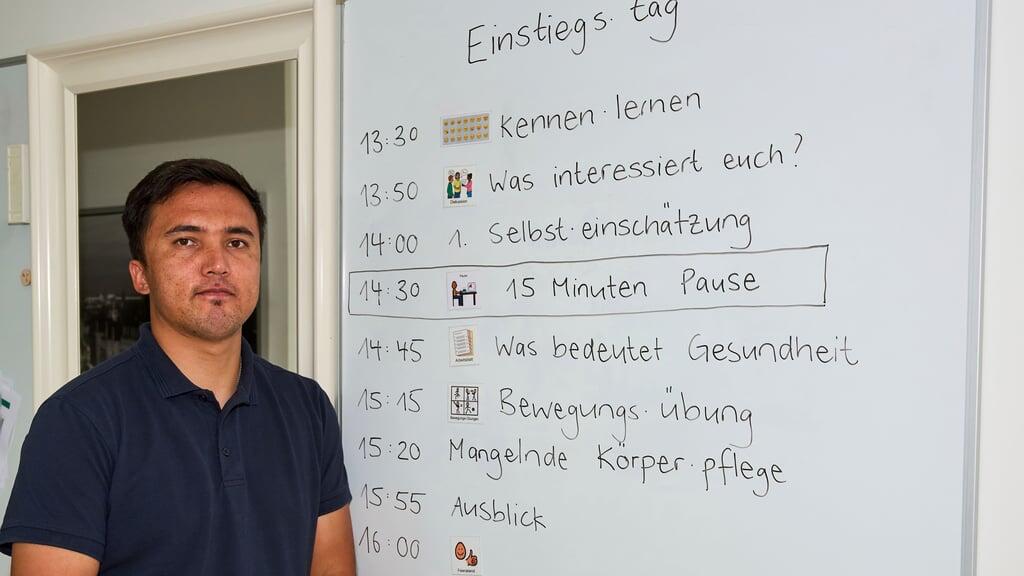 Einstiegs·tag
13:30 Kennen·lernen
13:50 Diskussion Was interessiert euch?
14:00 1. Selbst·einschätzung
14:30 Pause 15 Minuten Pause
14:45 Arbeitsblatt Was bedeutet Gesundheit
15:15 Bewegungs·übung
15:20 Mangelnde Körper·pflege
15:55 Ausblick
16:00 Feierabend